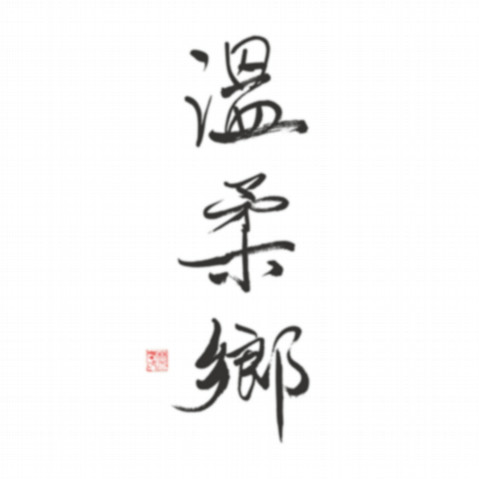 溫柔鄉